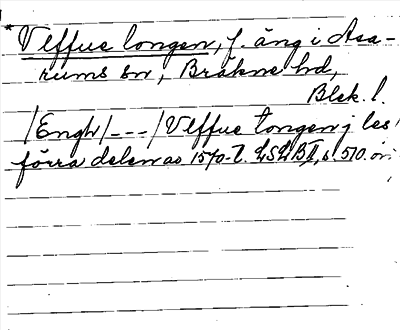 *Ulffue longen, f. äng i Asa-
rums sn, Bräkne hd,
Blek. l.
/Engh/---/Vlffue longen j les
förra delen av 1570-t. LSLBII, s. 510. or.